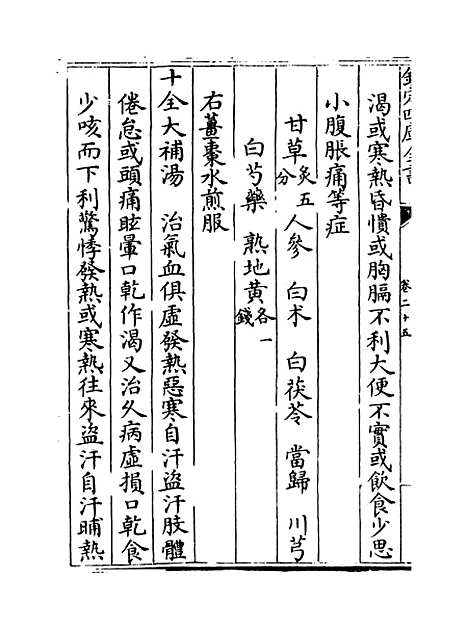 欽定四庫全書
卷二十五
渴或寒熱昏憒或胸膈不利大便不實或飲食少思
小腹脹痛等症
甘草炙五分人參 白术 白茯苓 當歸 川芎
白芍藥 熟地黄各一錢
右薑棗水煎服
十全大補湯 治氣血俱虚發熱惡寒自汗盗汗肢體
倦怠或頭痛眩暈口乾作渴又治久病虚損口乾食
少咳而下利驚悸發熱或寒熱往來盗汗自汗晡熱